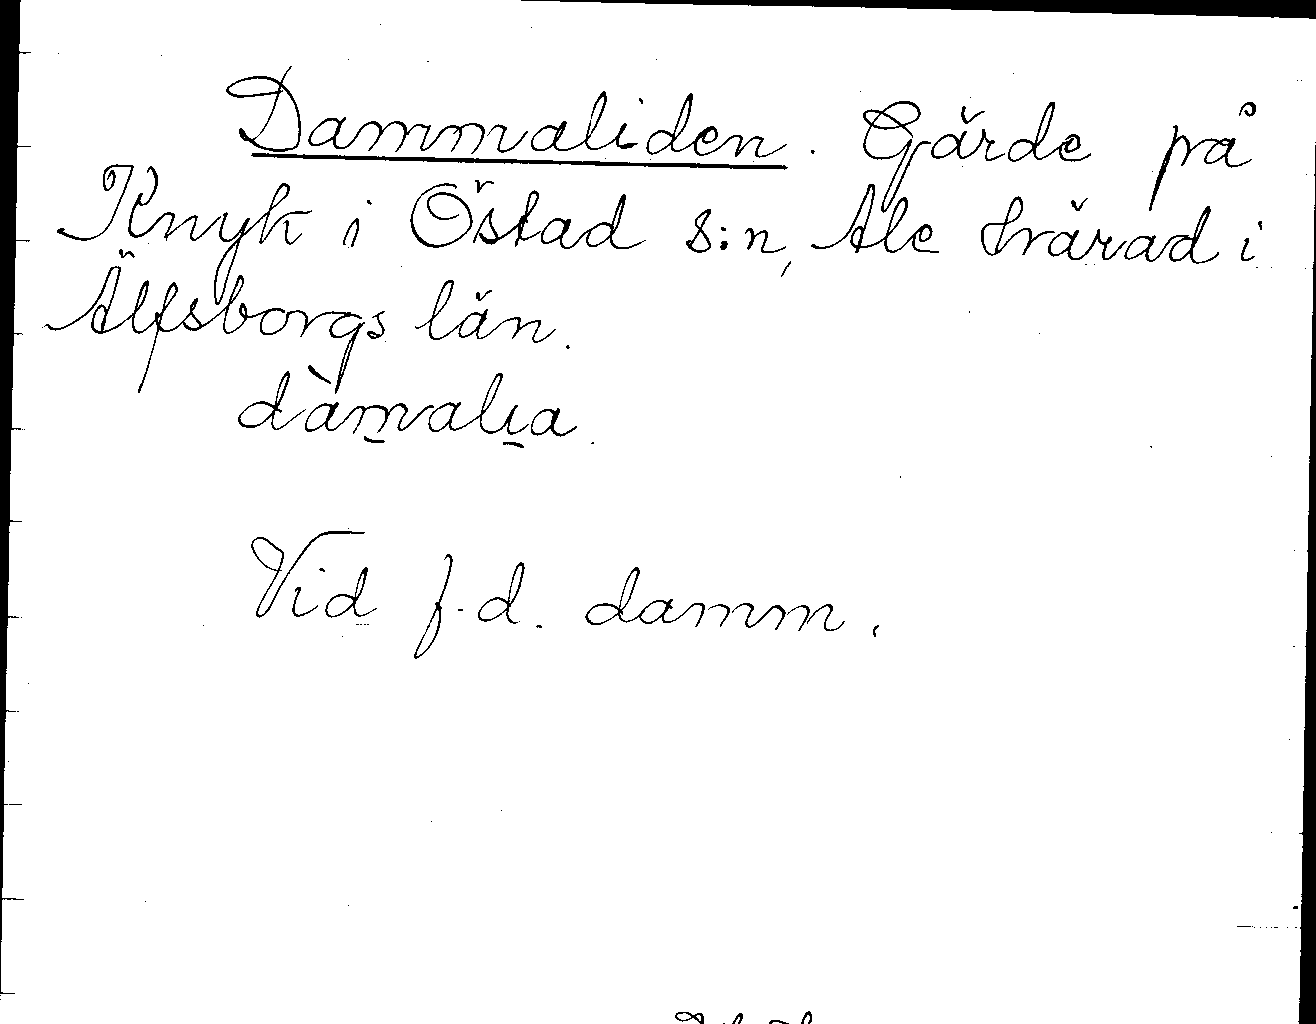 Dammaliden. Gärde på
Knyk i Östad s:n, Ale härad i
Älfsborgs län.
dàm̱valı̱a.
Vid f.d. damm.